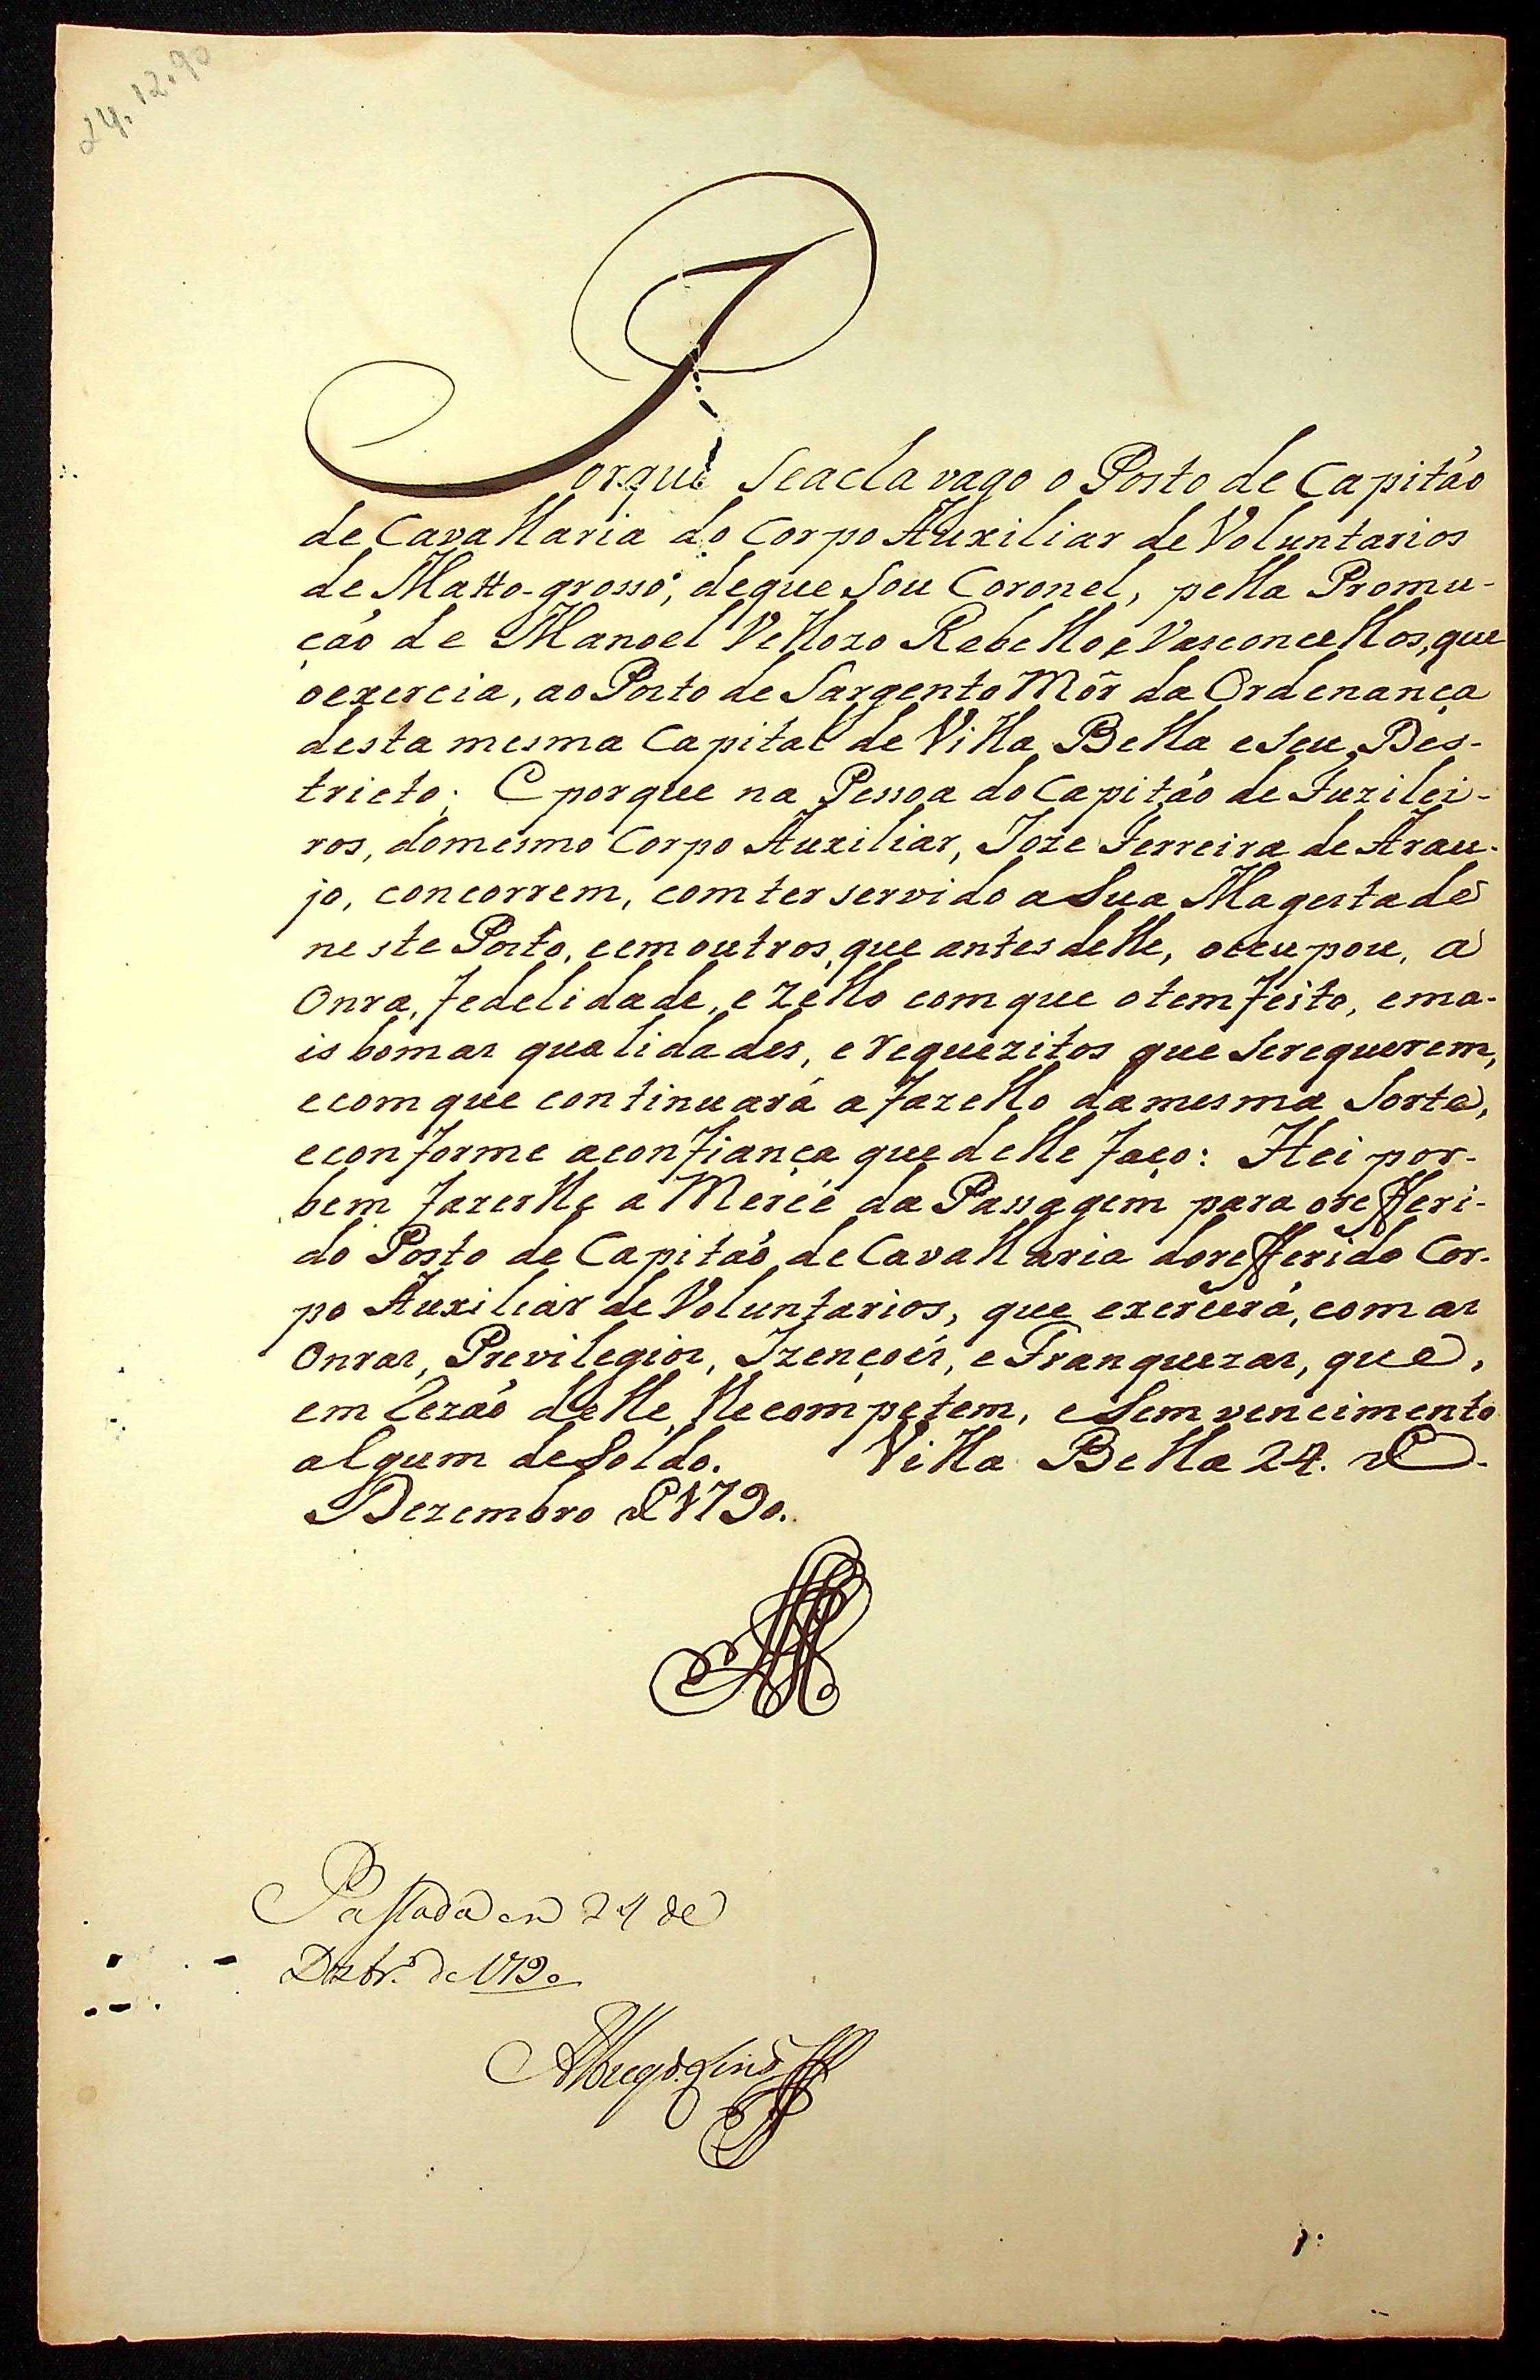 24.12.90
Porque Seacha vago o Posto de Capitão
de Cavallaria do Corpo Auxiliar de Voluntarios
de Matto-grosso; deque Sou Coronel, pella Promu-
ção de Manoel Vellozo Rebello e Vasconcellos, que
oexercia, ao Posto de Sargento Mór da Ordenança
desta mesma Capital de Villa Bella e Seu Des-
tricto; E porque na Pessoa do Capitão de Fuzilei-
ros, domesmo Corpo Auxiliar, Joze Ferreira de Arau-
jo, concorrem, comter servido a Sua Magestade
neste Posto, eemoutros, que antes delle, occupou, a
Onra, fedelidade, e zello comque otemfeito, ema-
is bomas qualidades, e requezitos que Serequerem,
ecomque continuará a fazello damesma Sorte,
econforme aconfiança que delle faço: Hei por-
bem fazerlhe a Mercê da Passagem para oreffery-
do Posto de Capitão de Cavallaria dorefferido Cor-
po Auxiliar de Voluntarios, que exercerá, com as
Onras, Previlegios, Izençoés, e Franquezas, que,
em rezão delle, lhecompetem, e Sem vencimento
algum deSoldo. Villa Bella 24. de
Dezembro de 1790.
Passada em 24 de
Dezbr.º de 1790